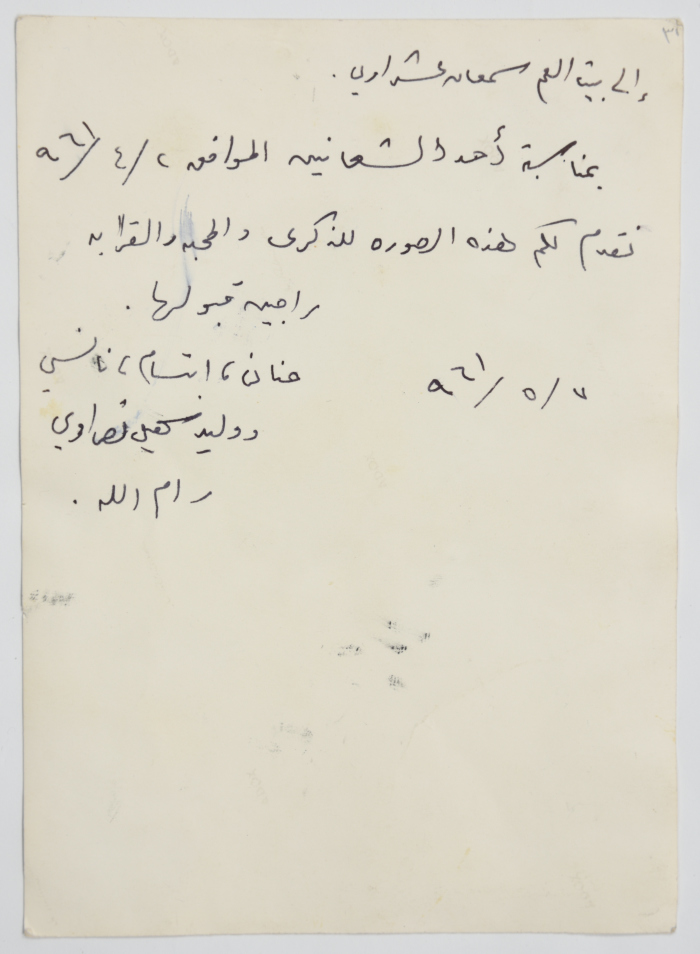 ٣٢
إلى بيت العم سمعان عشراوي.
بمناسبة أحد الشعانين الموافق ٢/٤/٩٦١
نقدم لكم هذه الصوره للذكرى والمحبه والقرابه
راجين قبولها.
حنان، ابتسام، نانسي
ووليد نصراوي
رام الله.
٧/٥/٩٦١